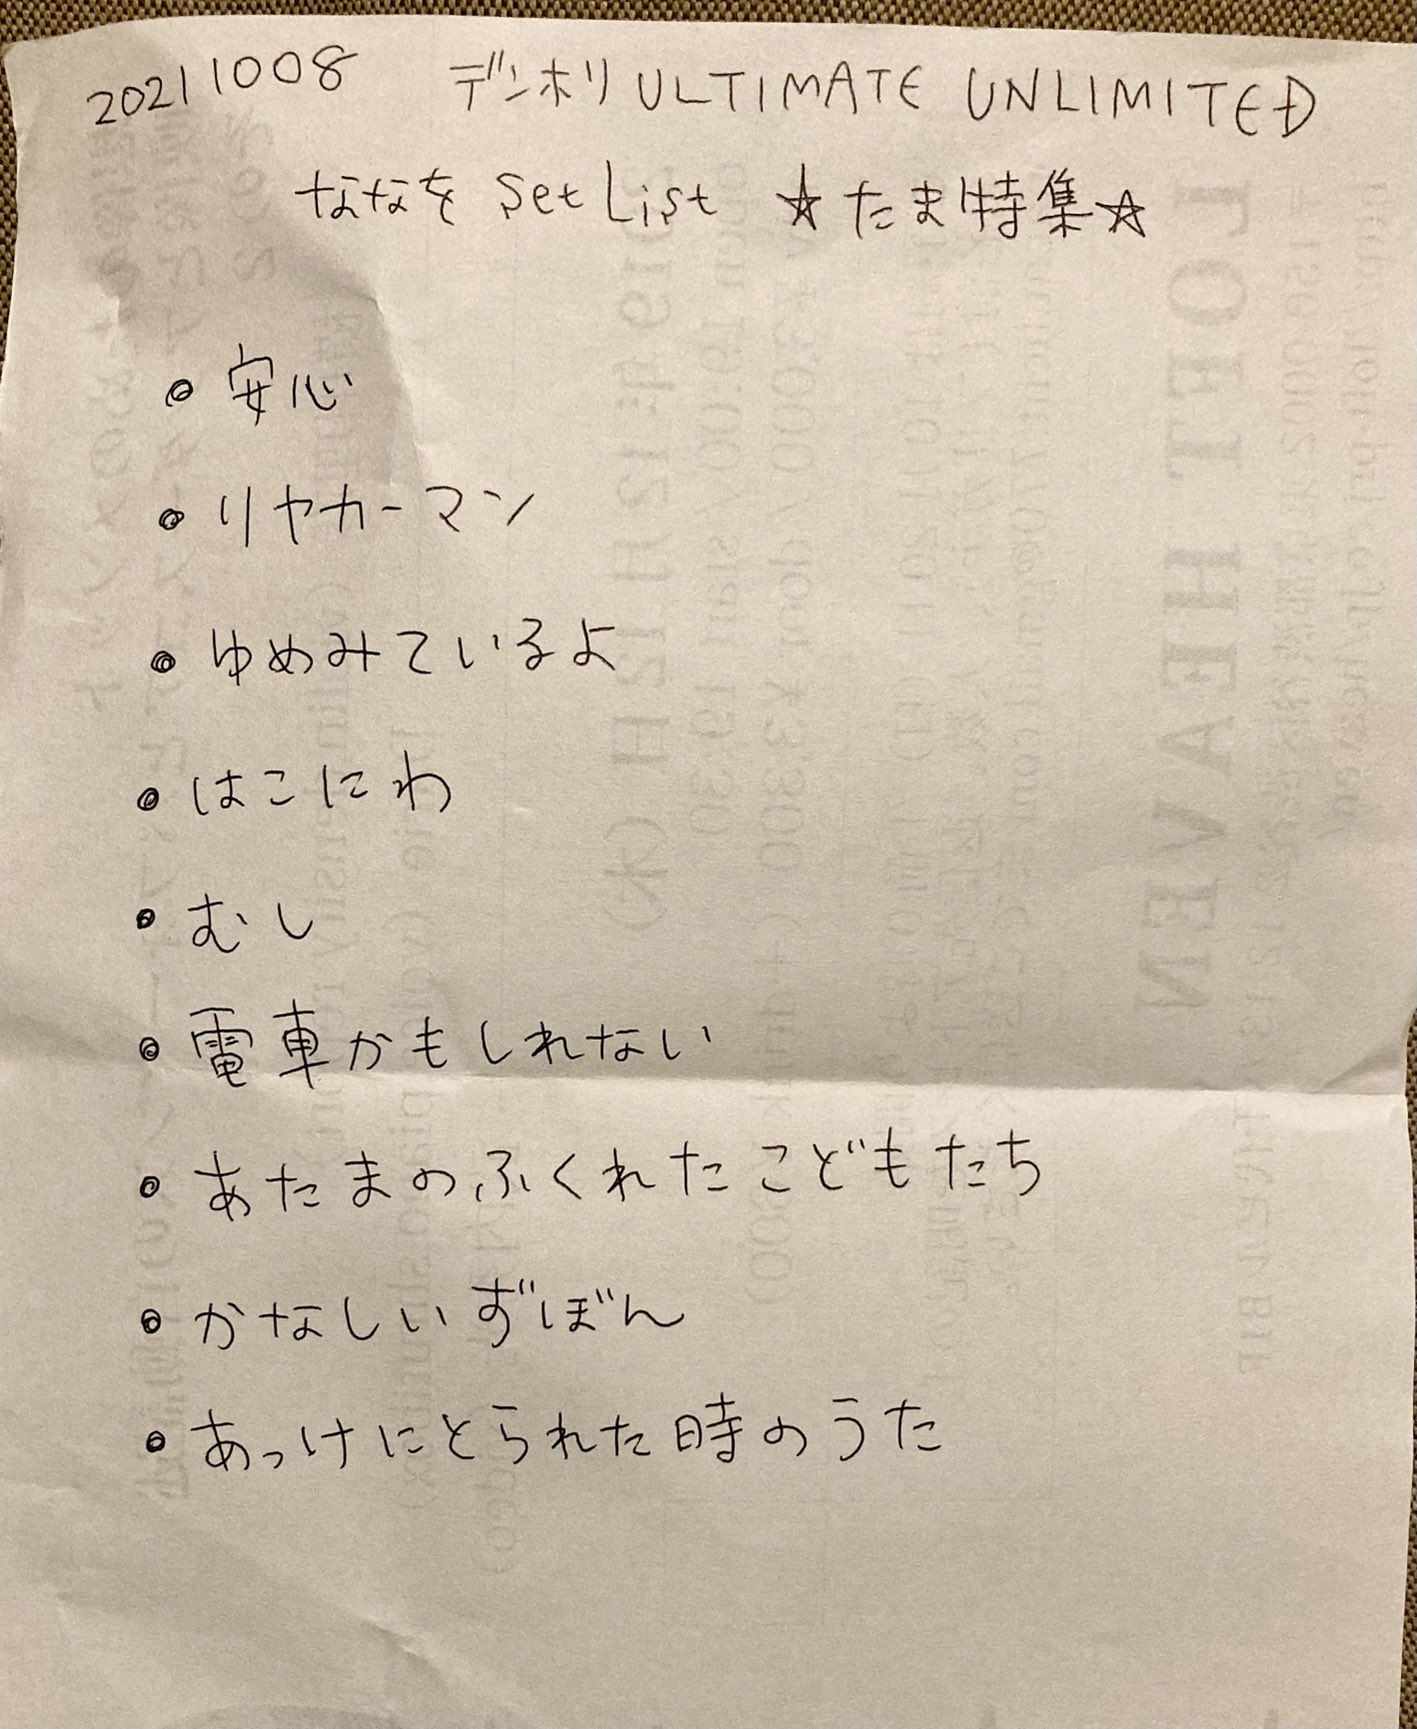 20211008 デンホリ ULTIMATE UNLIMITED
ななを Set List ☆たま特集☆
• 安心
• リヤカーマン
• ゆめみているよ
• はこにわ
• むし
• 電車かもしれない
• あたまのふくれたこどもたち
• かなしいずぼん
• あっけにとられた時のうた